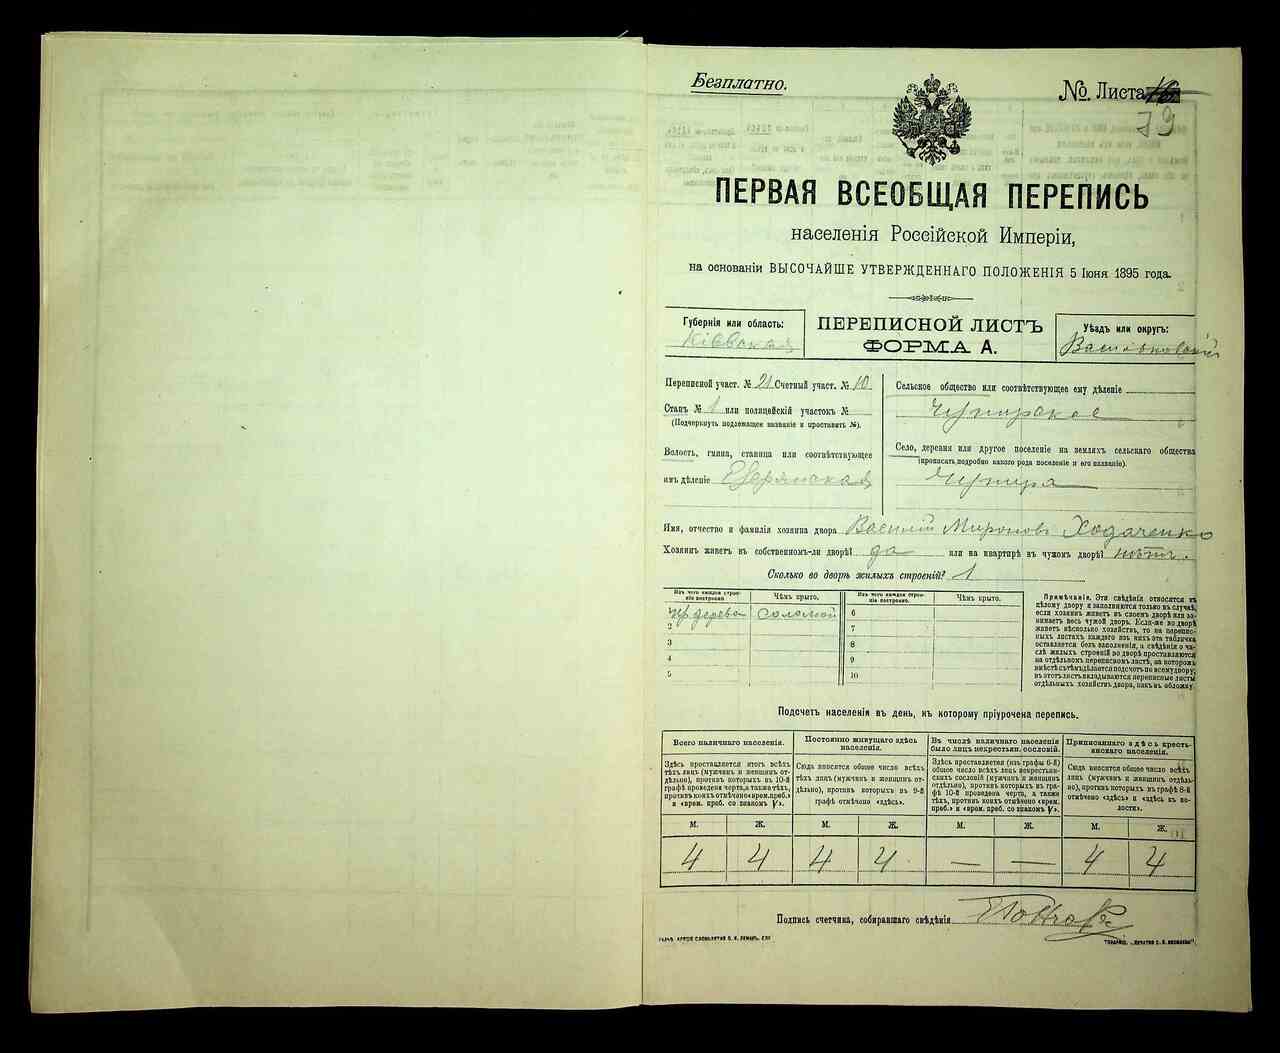 Безплатно.
№ Листа
79
ПЕРВАЯ ВСЕОБЩАЯ ПЕРЕПИСЬ
населенія Россійской Имперіи,
на основаніи ВЫСОЧАЙШЕ УТВЕРЖДЕННАГО ПОЛОЖЕНІЯ 5 Іюня 1895 года.
Губернія или область:
Кіевская
ПЕРЕПИСНОЙ ЛИСТЪ
ФОРМА А.
Уѣздъ или округъ:
Васильковскій
Переписной участ. № 21 Счетный участ. № 10
Станъ № 1 или полицейскій участокъ №
(Подчеркнуть подлежащее названіе и проставить №).
Волость, гмина, станица или соотвѣтствующее
имъ дѣленіе
Сельское общество или соотвѣтствующее ему дѣленіе
Чепирское
Село, деревня или другое поселеніе на земляхъ сельскаго общества
(прописать подробно какого рода поселеніе и его названіе).
Чепира
Имя, отчество и фамилія хозяина двора Василій Мироновъ Ходаченко
Хозяинъ живетъ въ собственномъ-ли дворѣ? да или на квартирѣ въ чужомъ дворѣ? нѣтъ.
Сколько во дворѣ жилыхъ строеній? 1
Изъ чего каждое строеніе построено. Чѣмъ крыто. Изъ чего каждое строеніе построено. Чѣмъ крыто.
дерева соломой 6
2 7
3 8
4 9
5 10
Примѣчаніе. Эти свѣдѣнія относятся къ
цѣлому двору и заполняются только въ случаѣ,
если хозяинъ живетъ въ своемъ дворѣ или занимаетъ
весь чужой дворъ. Если-же во дворѣ
живетъ нѣсколько хозяйствъ, то на переписныхъ
листахъ каждаго изъ нихъ эта табличка
оставляется безъ заполненія, а свѣдѣнія о числѣ
жилыхъ строеній во дворѣ проставляются
на отдѣльномъ переписномъ листѣ, на которомъ
вмѣстѣ съ тѣмъ дѣлается подсчетъ по всему двору;
въ этотъ листъ вкладываются переписные листы
отдѣльныхъ хозяйствъ двора, какъ въ обложку.
Подсчетъ населенія въ день, къ которому пріурочена перепись.
Всего наличнаго населенія.
Здѣсь проставляется итогъ всѣхъ
тѣхъ лицъ (мужчинъ и женщинъ отдѣльно),
противъ которыхъ въ 10-й
графѣ проведена черта, а также тѣхъ,
противъ коихъ отмѣчено «врем. преб.»
и «врем. преб. со знакомъ V».
Постоянно живущаго здѣсь
населенія.
Сюда вносится общее число всѣхъ
тѣхъ лицъ (мужчинъ и женщинъ отдѣльно),
противъ которыхъ въ 9-й
графѣ отмѣчено «здѣсь».
Въ числѣ наличнаго населенія
было лицъ некрестьян. сословій.
Здѣсь проставляется (изъ графы 6-й)
общее число всѣхъ лицъ некрестьянскихъ
сословій (мужчинъ и женщинъ
отдѣльно), противъ которыхъ въ графѣ
10-й проведена черта, а также
тѣхъ, противъ коихъ отмѣчено «врем.
преб.» и «врем. преб. со знакомъ V».
Приписаннаго здѣсь крестьянскаго
населенія.
Сюда вносится общее число всѣхъ
лицъ (мужчинъ и женщинъ отдѣльно),
противъ которыхъ въ графѣ 8-й
отмѣчено «здѣсь» и «здѣсь въ волости».
М. Ж. М. Ж. М. Ж. М. Ж.
4 4 4 4 — — 4 4
Подпись счетчика, собиравшаго свѣдѣнія